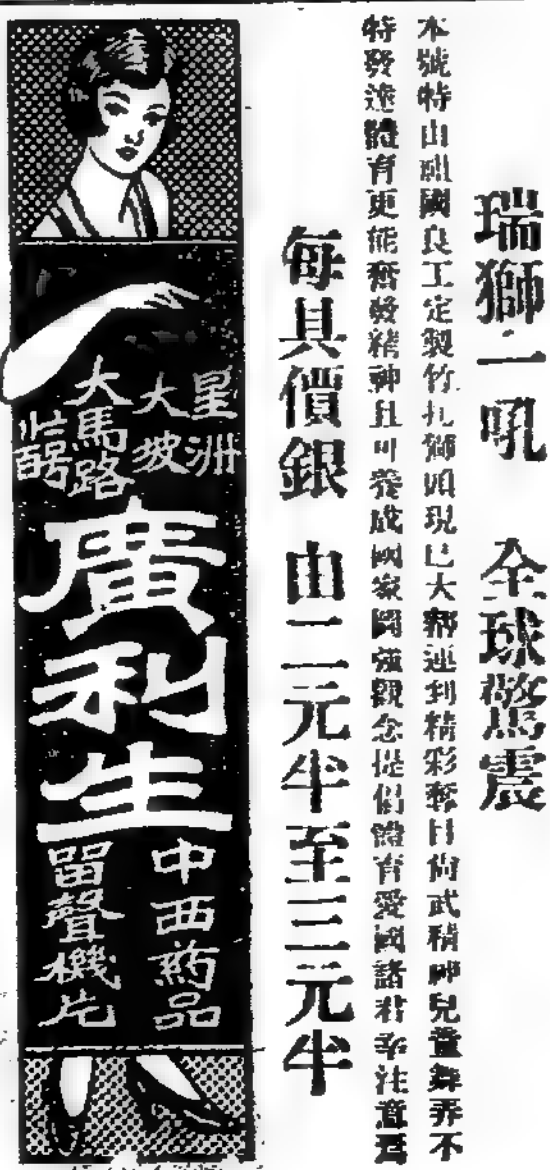 瑞獅一吼　全球驚震
本號特由祖國良工定製竹扎獅頭現已大幫運到精彩奪目尚武精神兒童舞弄不
特發達體育更能奮發精神且可養成國家圖強觀念提倡體育愛國諸君幸注意焉
每具價銀　由二元半至三元半
星洲
大坡
大馬路
廣利生
中西葯品
留聲機片